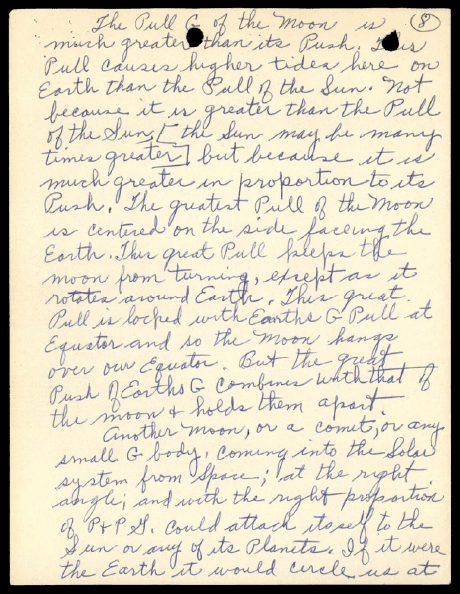 The Pull G of the Moon is 8
much greater than its Push. This
Pull causes higher tides here on
Earth than the Pull of the Sun. Not
because it is greater than the Pull
of the Sun, [the Sun may be many
times greater] but because it is
much greater in proportion to its
Push. The greatest Pull of the Moon
is centered on the side faceing the
Earth. This great Pull keeps the
moon from turning, except as it
rotates around Earth. This great
Pull is locked with Earths G Pull at
Equator and so the Moon hangs
over our Equator. But the great
Push of Earths G combines with that of
the moon & holds them apart.
Another Moon, or a comet, or any
small G body, coming into the Solar
system from Space; at the right
angle; and with the right proportion
of P & P G. could attach itself to the
Sun or any of its Planets. If it were
the Earth it would circle us at